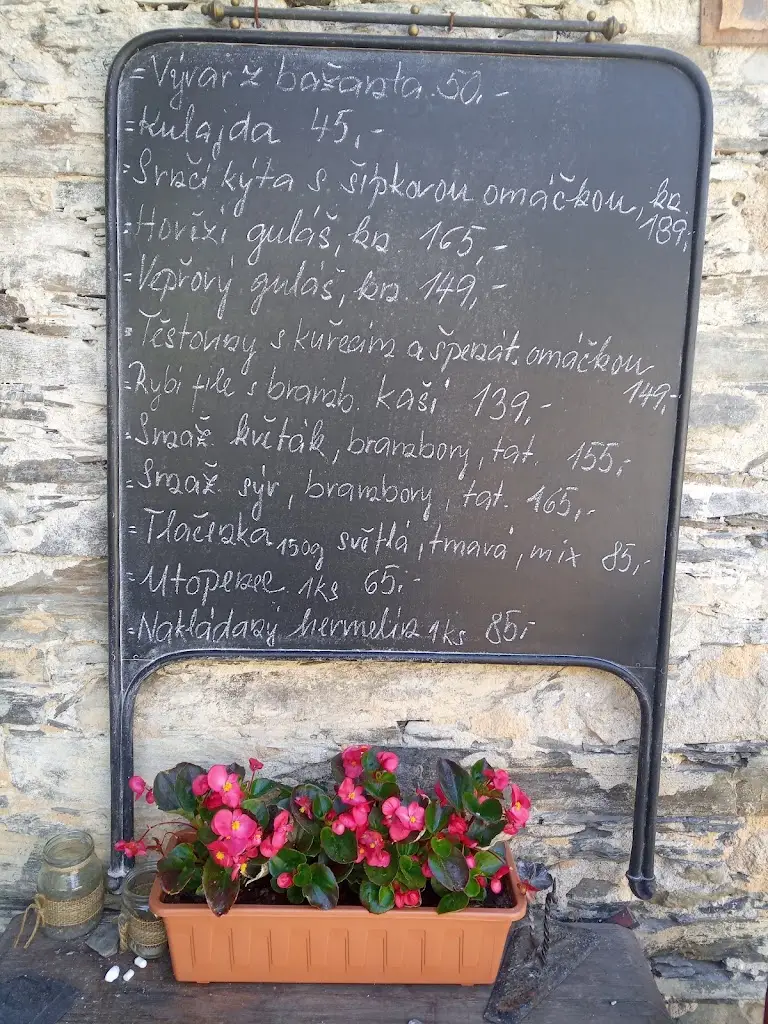 = Vývar z bažanta 50,-
= Kulajda 45,-
= Srnčí kýta s šípkovou omáčkou, kn.
189,-
= Hovězí guláš, kn 165,-
= Vepřový guláš, kn. 149,-
= Těstoviny s kuřecím a špenát. omáčkou
149,-
= Rybí file s bramb. kaší 139,-
= Smaž. květák, brambory, tat. 155,-
= Smaž. sýr, brambory, tat. 165,-
= Tlačenka 150g světlá, tmavá, mix 85,-
= Utopenec 1ks 65,-
= Nakládaný hermelín 1ks 85,-